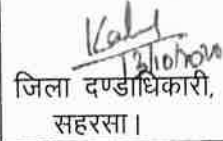 13/10/2020
जिला दण्डाधिकारी,
सहरसा।